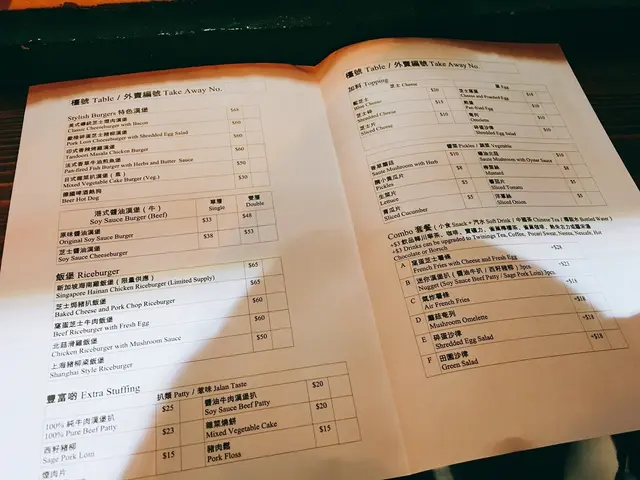 檯號 Table / 外賣編號 Take Away No.
Stylish Burgers 特色漢堡
美式傳統芝士煙肉漢堡
Classic Cheeseburger with Bacon $68
Pork Loin Cheeseburger with Shredded Egg Salad $60
印式香辣烤雞漢堡
Tandoori Masala Chicken Burger $60
法式香草牛油煎魚堡
Pan-fired Fish Burger with Herbs and Butter Sauce $50
日式雜菜扒漢堡 ( 素 )
Mixed Vegetable Cake Burger (Veg.) $30
德國啤酒熱狗
Beer Hot Dog
港式醬油漢堡 ( 牛 ) 單層 雙層
Soy Sauce Burger (Beef) Single Double
原味醬油漢堡
Original Soy Sauce Burger $33 $48
芝士醬油漢堡
Soy Sauce Cheeseburger $38 $53
飯堡 Riceburger
新加坡海南雞飯堡 ( 限量供應 )
Singapore Hainan Chicken Riceburger (Limited Supply) $65
芝士焗豬扒飯堡
Baked Cheese and Pork Chop Riceburger $65
窩蛋芝士牛肉飯堡
Beef Riceburger with Fresh Egg $60
北菇滑雞飯堡
Chicken Riceburger with Mushroom Sauce $60
上海豬柳菜飯堡
Shanghai Style Riceburger $50
豐富啲 Extra Stuffing
扒類 Patty / 惹味 Jalan Taste
100% 純牛肉漢堡扒
100% Pure Beef Patty $25
醬油牛肉漢堡扒
Soy Sauce Beef Patty $20
西籽豬柳
Sage Pork Loin $23
雜菜燒餅
Mixed Vegetable Cake $20
煙肉片 $15
豬肉鬆
Pork Floss $15
檯號 Table / 外賣編號 Take Away No.
加料 Topping
芝士 Cheese
蛋 Egg
藍芝士
Blue Cheese $20
Cheese and Poached Egg $18
芝士碎
Shredded Cheese $15
煎蛋
Pan-fired Egg $10
芝士片
Sliced Cheese $10
Omelette $10
碎蛋沙律
Shredded Egg Salad $10
醬菜 Pickles / 蔬菜 Vegetable
香草蘑菇
Saute Mushroom with Herb
蠔油北菇
Saute Mushroom with Oyster Sauce $10
Pickles $8
Mustard $8
生菜片
Lettuce $5
蕃茄片
Sliced Tomato $5
青瓜片
Sliced Cucumber $5
洋蔥絲
Sliced Onion $5
Combo 套餐 ( 小食 Snack + 汽水 Soft Drink / 中國茶 Chinese Tea / 樽裝水 Bottled Water )
+$3 Drinks can be upgraded to Twinings Tea, Coffee, Pocari Sweat, Nestea, Nescafe, Hot
Chocolate or Borsch
A 窩蛋芝士薯條
French Fries with Cheese and Fresh Egg +$28
B 迷你漢堡扒 ( 醬油牛扒 / 西籽豬柳 ) 3pcs
Nugget (Soy Sauce Beef Patty / Sage Pork Loin) 3pcs +$23
C 氣炸薯條
Air French Fries +$18
D 蘑菇奄列
Mushroom Omelette +$18
E 碎蛋沙律
Shredded Egg Salad +$18
F 田園沙律
Green Salad +$18